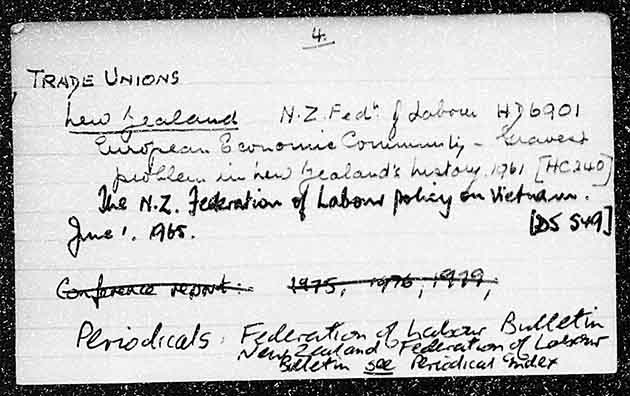 4.
TRADE UNIONS
New Zealand N.Z. Fedn of Labour HD6901
European Economic Community - Gravest
problem in New Zealand's history. 1961 [HC240]
The N.Z. Federation of Labour policy on Vietnam.
June 1. 1965. [DS 549]
Conference report: 1975, 1976, 1979,
Periodicals: Federation of Labour Bulletin
New Zealand Federation of Labour
Bulletin see Periodical Index